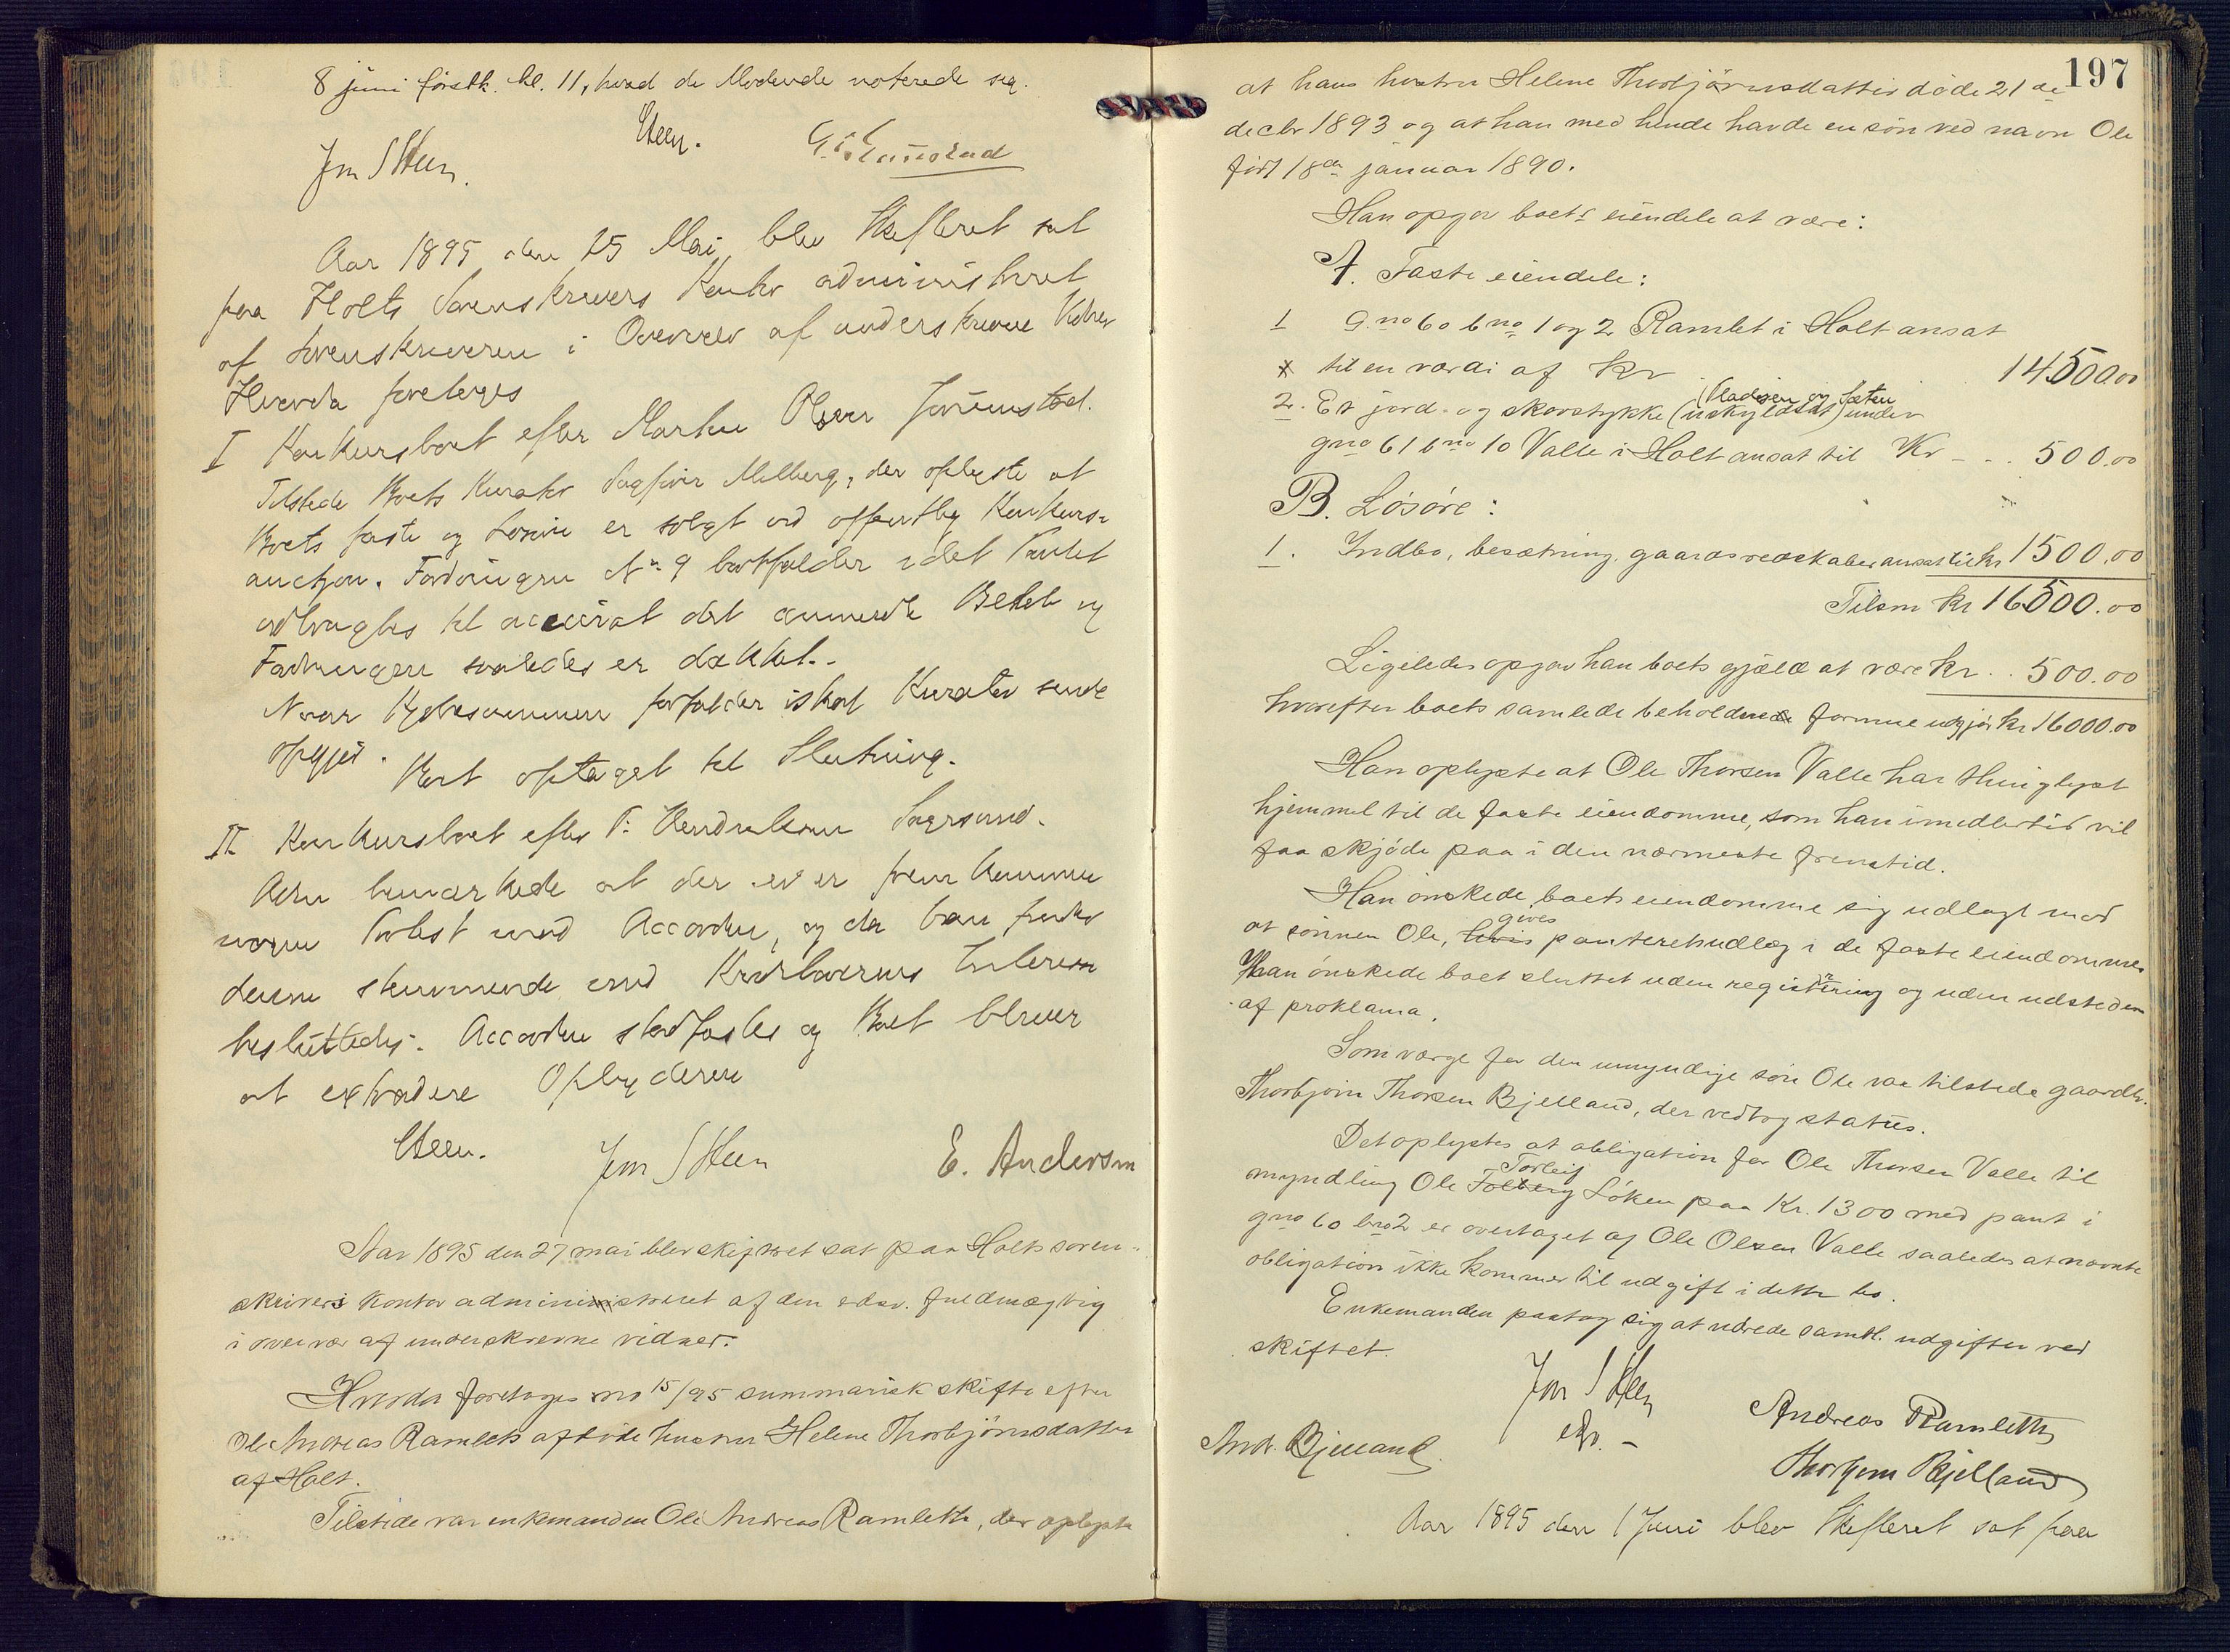 8 juni förstk. kl. 11, hvad de Mødende noterede seg.
Steen.
Jon S Steen.
Aar 1895 den 25 Mai blev Skifteret sat
paa Holts Sorenskrivers Kontor administreret
af Sorenskriveren i Overvær af underskrevne Vidner
Hvorda foretoges
I Konkursboet efter Markus Olsen
Tilstede Boets Kurator Sagfører Melberg, der oplyste at
Boets faste og Losøre er solgt ved offentlig Konkurs-
auction. Fordringen No 9 bortfalder idet Pantet
udbragtes til accurat det anmeldte Beløb og
Fordringen saaledes er dækket.
Naar Kjøbesummen forfalder skal Kurator sende
opgjør.
Boet optaget til Slutning.
II Konkursboet efter T. Hendriksen Sagesund.
Adm bemærkede at der ei er fremkommen
nogen Protest mod Accorden, og da han finder
denne stemmende med Kreditorernes Interesse
besluttedes: Accorden stadfæstes og Boet bliver
at extradere Opbyderen
Steen. Jon S Steen E. Andersen
Aar 1895 den 27 mai blev skifteret sat paa Holts soren-
skriveri kontor administreret af den edsv. fuldmægtig
i overvær af underskrevne vidner.
Hvorda foretoges no 15/95 summarisk skifte efter
Ole Andreas Ramlets afdøde hustru Helene Thorbjörnsdatter
af Holt.
Tilstede var enkemanden Ole Andreas Ramlette, der oplyste
197
at hans hustru Helene Thorbjörnsdatter döde 21de
decbr 1893 og at han med hende havde en sön ved navn Ole
född 18de januar 1890.
Han opgav boets eiendele at være:
A. Faste eiendele:
1 G.no 60 bno 1 og 2 Ramlet i Holt ansat
til en værdi af Kr 14500.00
2. Et jord- og skovstykke (uskyldsat) under
gno 61 bno 10 Valle i Holt ansat til Kr - . . 500.00
B. Lösöre:
1. Indbo, besætning, gaardsredskaber ansat til kr 1500.00
Tilsm kr 16500.00
Ligeledes opgav han boets gjæld at være kr . . 500.00
hvorefter boets samlede beholdne formue udgjör kr 16000.00
Han oplyste at Ole Thorsen Valle har thinglyst
hjemmel til de faste eiendomme, som han imidlertid vil
faa skjöde paa i den nærmeste fremtid.
Han önskede boets eiendomme sig udlagt mod
at sönnen Ole, gives panteretudlæg i de faste eiendomme.
Han önskede boet sluttet uden registrering og uden udsteden
af proklama.
Som værge for den umyndige sön Ole var tilstede gaardbr.
Thorbjörn Thorsen Bjelland, der vedtog status.
Det oplystes at obligation fra Ole Thorsen Valle til
myndling Ole Torleif Löken paa Kr. 1300 med pant i
gno 60 bno 2 er overtaget af Ole Olsen Valle saaledes at nævnte
obligation ikke kommer til udgift i dette bo.
Enkemanden paatog sig at udrede samtl. udgifter ved
skiftet.
Jon S Steen
edsv. -
Andreas Ramlette
And. Bjelland.
Thorbjørn Bjelland
Aar 1895 den 1 Juni blev Skifteret sat paa